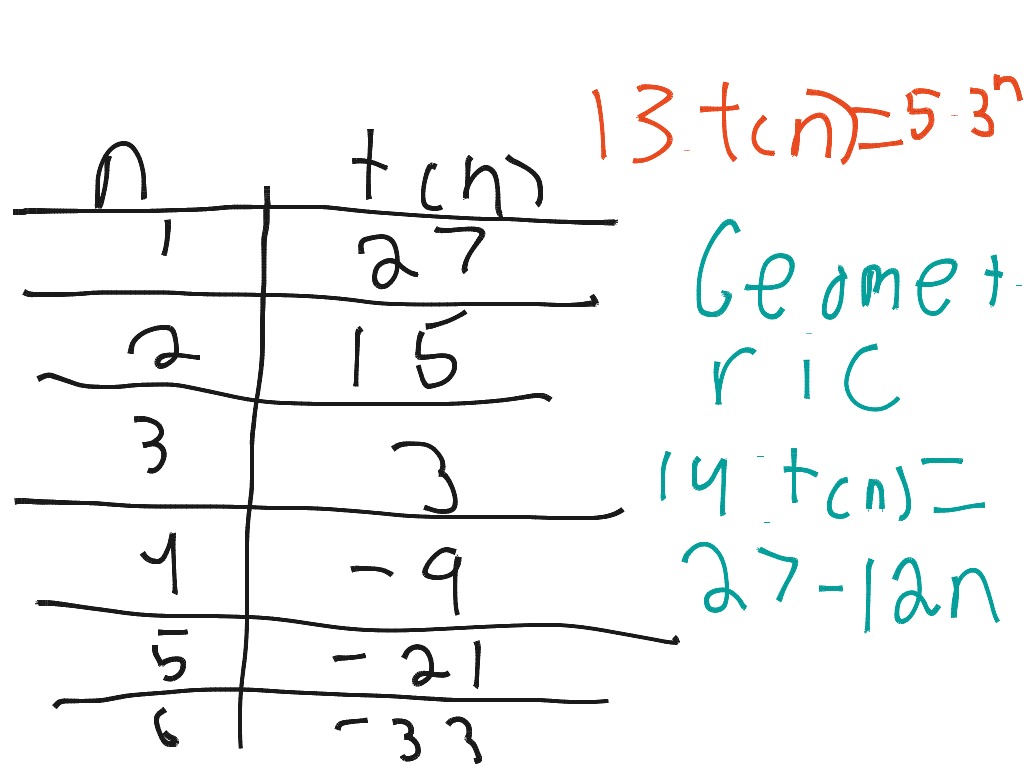 n t(n)
1 27
2 15
3 3
4 -9
5 -21
6 -33
13. t(n)=5·3ⁿ
Geomet-
ric
14. t(n)=
27-12n